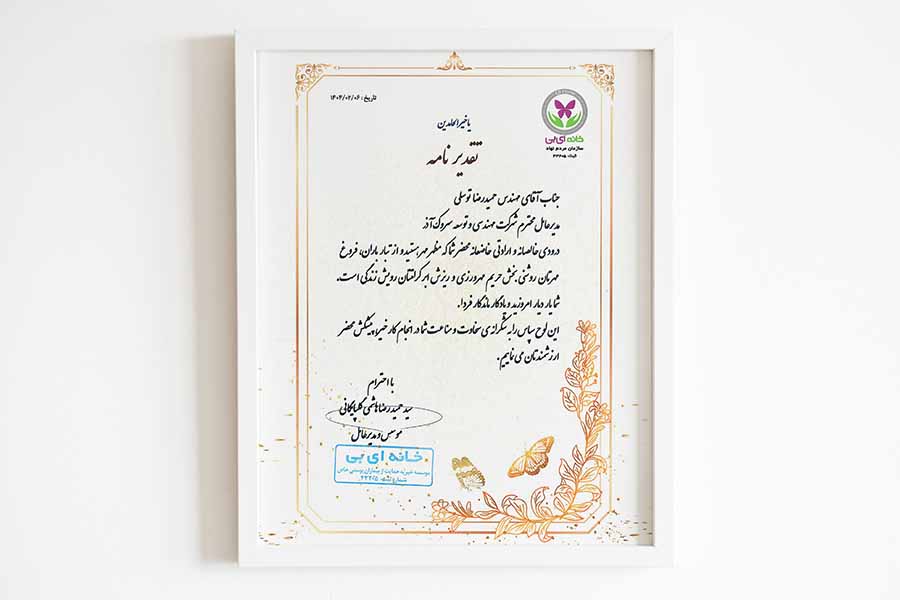 خانه ای بی
سازمان مردم نهاد
تاریخ : ۱۴۰۴/۰۲/۰۶
یا خیر الحامدین
تقدیر نامه
جناب آقای مهندس حمیدرضا توسلی
مدیرعامل محترم شرکت مهندسی و توسعه سروک آذر
درودی خالصانه و ارادتی خاضعانه محضر شما که مظهر مهر هستید و از تبار باران، فروغ
مهرتان روشنی بخش حریم مهرورزی و ریزش ابر کرامتتان رویش زندگی است.
شما یار دیار امروزید و یادگار ماندگار فردا.
این لوح سپاس را به شکرانه‌ی سخاوت و مناعت شما در انجام کار خیر، پیشکش محضر
ارزشمندتان می نماییم.
با احترام
سید حمیدرضا هاشمی گلپایگانی
موسس و مدیرعامل
خانه ای بی
موسسه خیریه حمایت از بیماران پوستی خاص